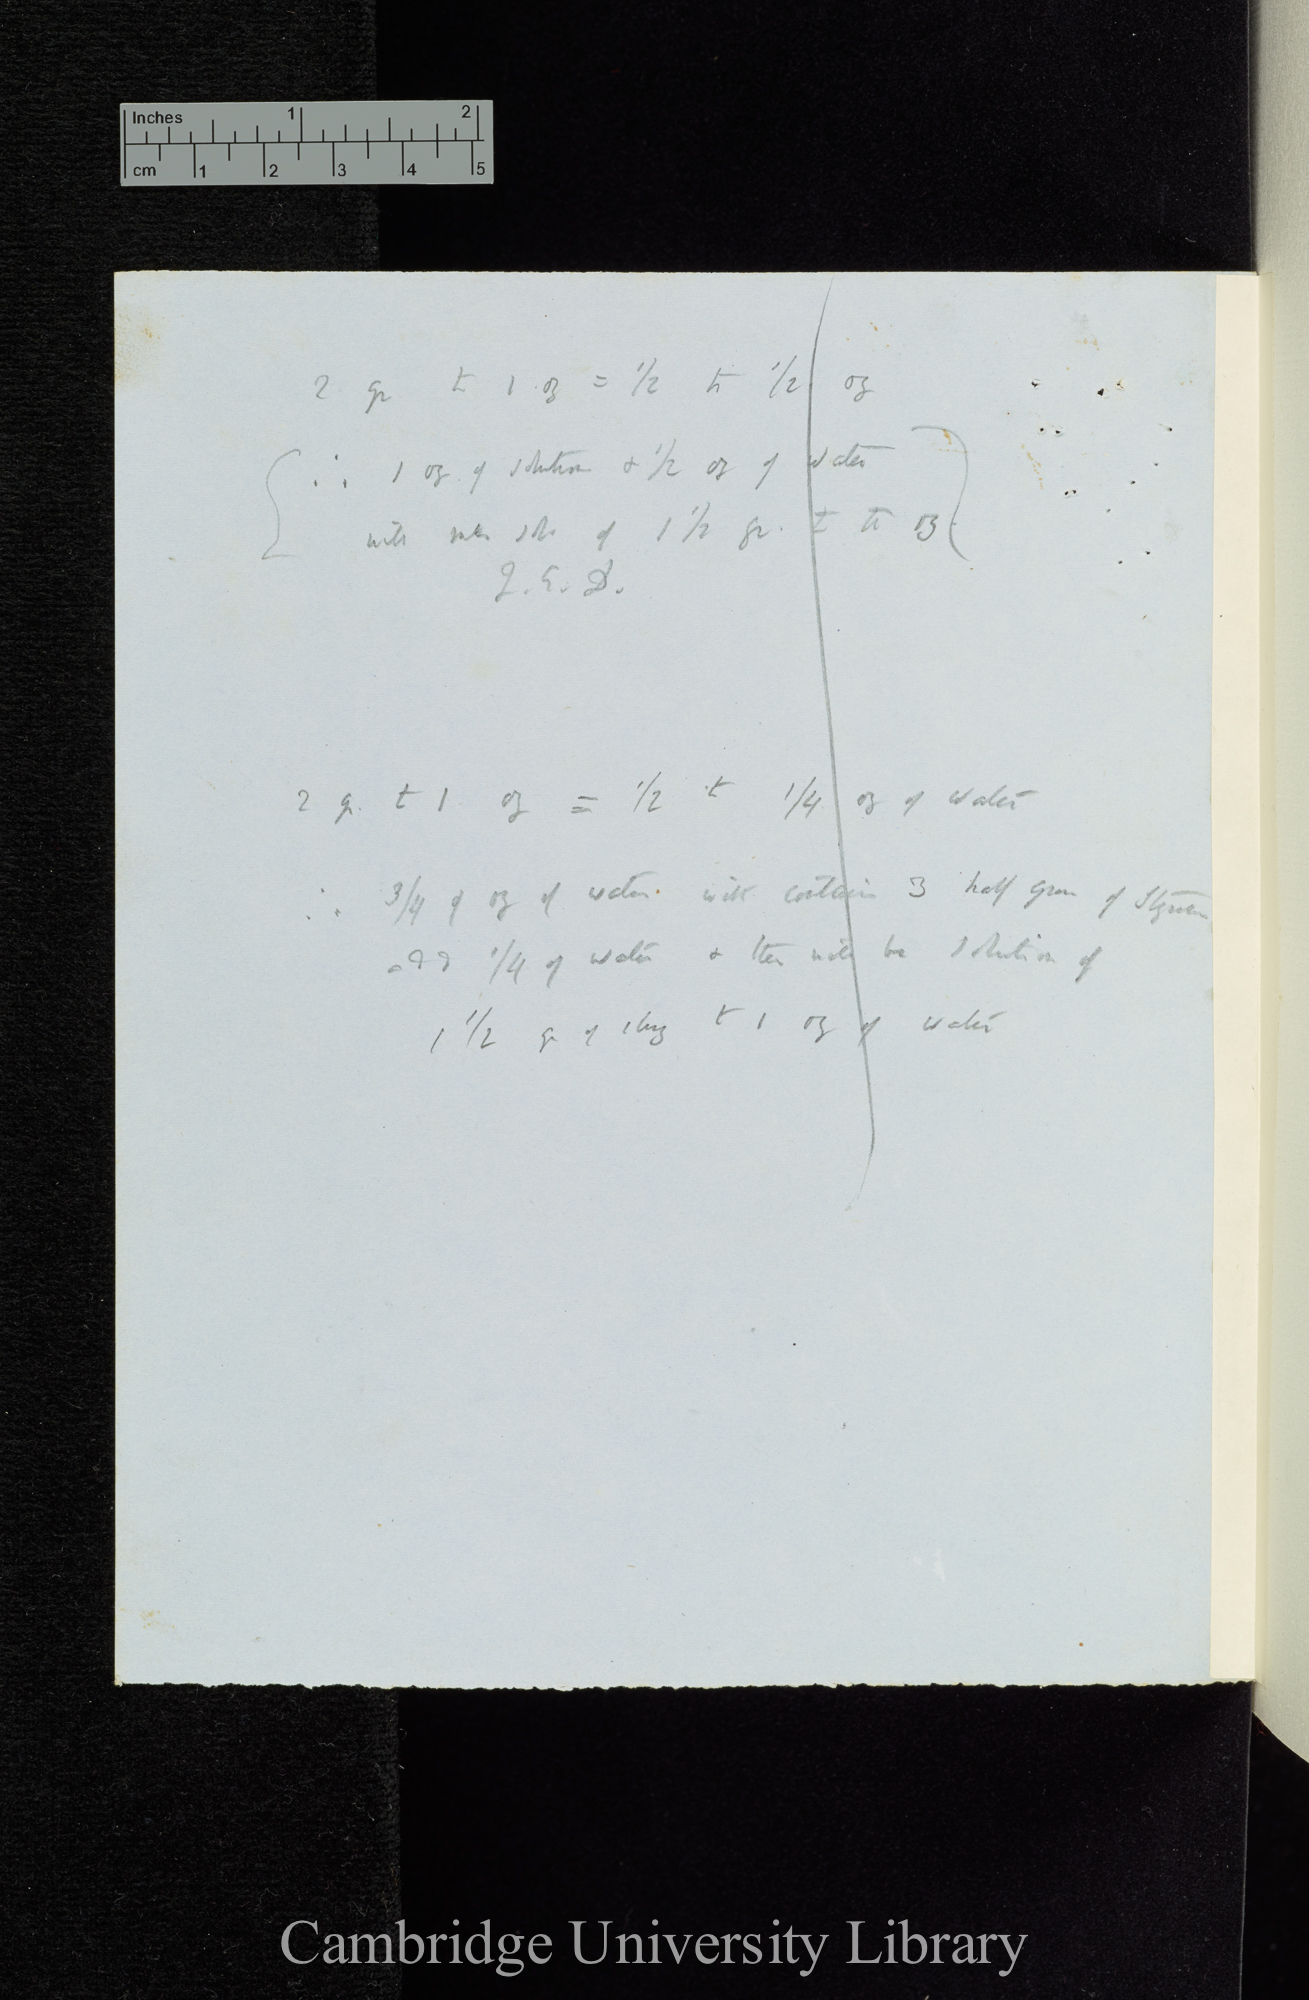 Inches 1 2
cm 1 2 3 4 5
2 gr to 1 oz = 1/2 to 1/2 oz
∴ 1 oz of solution & 1/2 oz of water
will make sol. of 1 1/2 gr. to the oz
Q.E.D.
2 gr. to 1 oz = 1/2 to 1/4 oz of water
∴ 3/4 of oz of water will contain 3 half grain of
add 1/4 of water & then will be solution of
1 1/2 gr of to 1 oz of water
Cambridge University Library